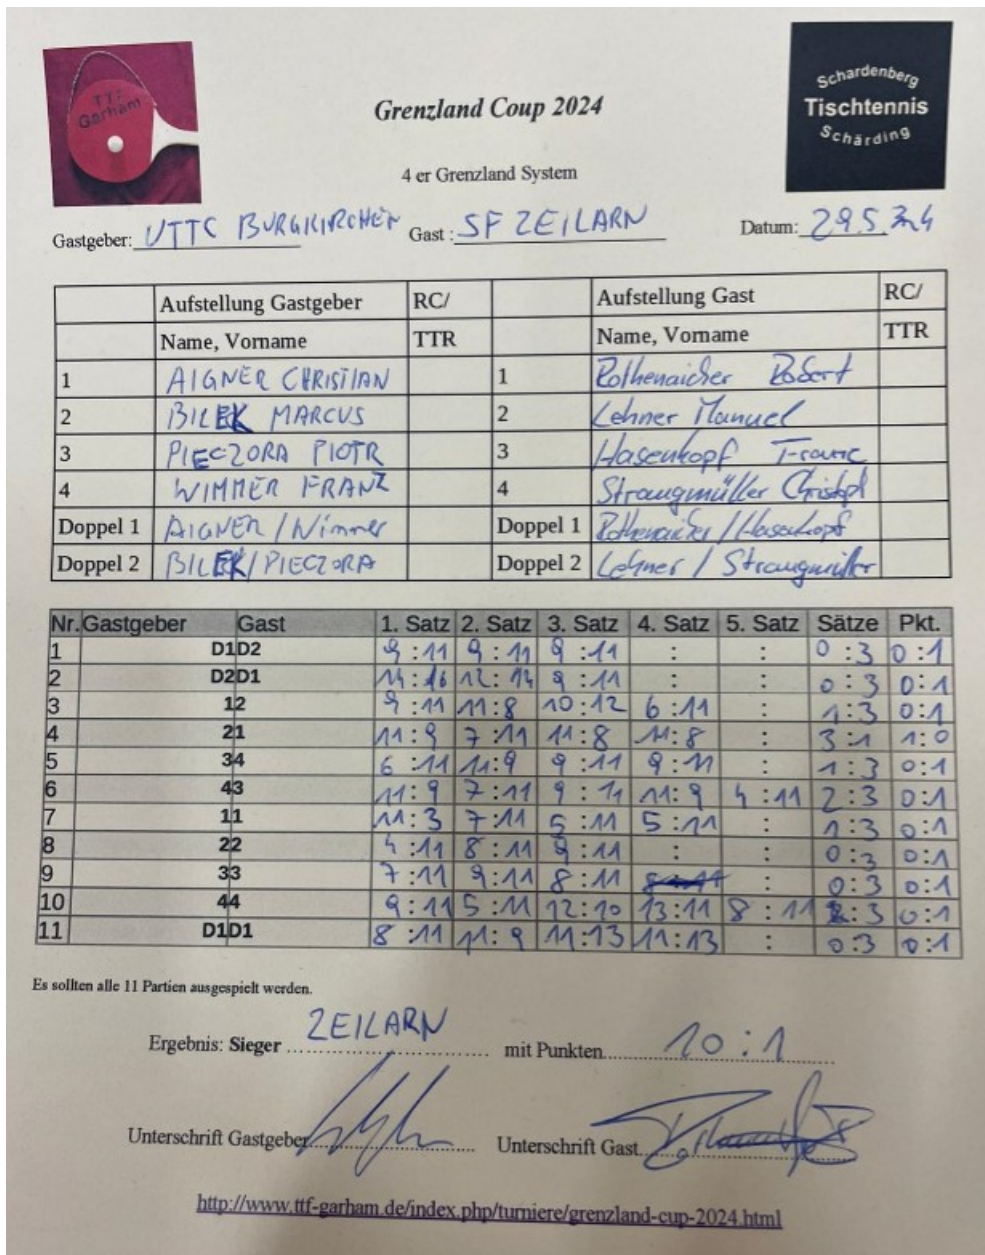 TTF
Garham
Schardenberg
Tischtennis
Schärding
Grenzland Coup 2024
4 er Grenzland System
Gastgeber: UTTC BURGKIRCHEN Gast : SF ZEILARN Datum: 29.5.24
Aufstellung Gastgeber RC/ Aufstellung Gast RC/
Name, Vorname TTR Name, Vorname TTR
1 AIGNER CHRISTIAN 1 Rothenaicher Robert
2 BILEK MARCUS 2 Lehner Manuel
3 PIECZORA PIOTR 3 Hasenkopf Franz
4 WIMMER FRANZ 4 Straugmüller Christoph
Doppel 1 AIGNER / Wimmer Doppel 1 Rothenaicher / Hasenkopf
Doppel 2 BILEK / PIECZORA Doppel 2 Lehner / Straugmüller
Nr. Gastgeber Gast 1. Satz 2. Satz 3. Satz 4. Satz 5. Satz Sätze Pkt.
1 D1 D2 9 :11 9 :11 9 :11 : : 0 :3 0:1
2 D2 D1 14:16 12:14 9 :11 : : 0:3 0:1
3 1 2 9 :11 11:8 10:12 6 :11 : 1:3 0:1
4 2 1 11:9 7 :11 11:8 11:8 : 3:1 1:0
5 3 4 6 :11 11:9 9 :11 9 :11 : 1:3 0:1
6 4 3 11:9 7 :11 9 :11 11:9 4 :11 2:3 0:1
7 1 1 11:3 7 :11 5 :11 5 :11 : 1:3 0:1
8 2 2 4 :11 8 :11 9 :11 : : 0:3 0:1
9 3 3 7 :11 9 :11 8 :11 : 0:3 0:1
10 4 4 9 :11 5 :11 12:10 13:11 8 :11 2:3 0:1
11 D1 D1 8 :11 11:9 11:13 11:13 : 0:3 0:1
Es sollten alle 11 Partien ausgespielt werden.
Ergebnis: Sieger ZEILARN mit Punkten 10:1
Unterschrift Gastgeber Unterschrift Gast
http://www.ttf-garham.de/index.php/turniere/grenzland-cup-2024.html